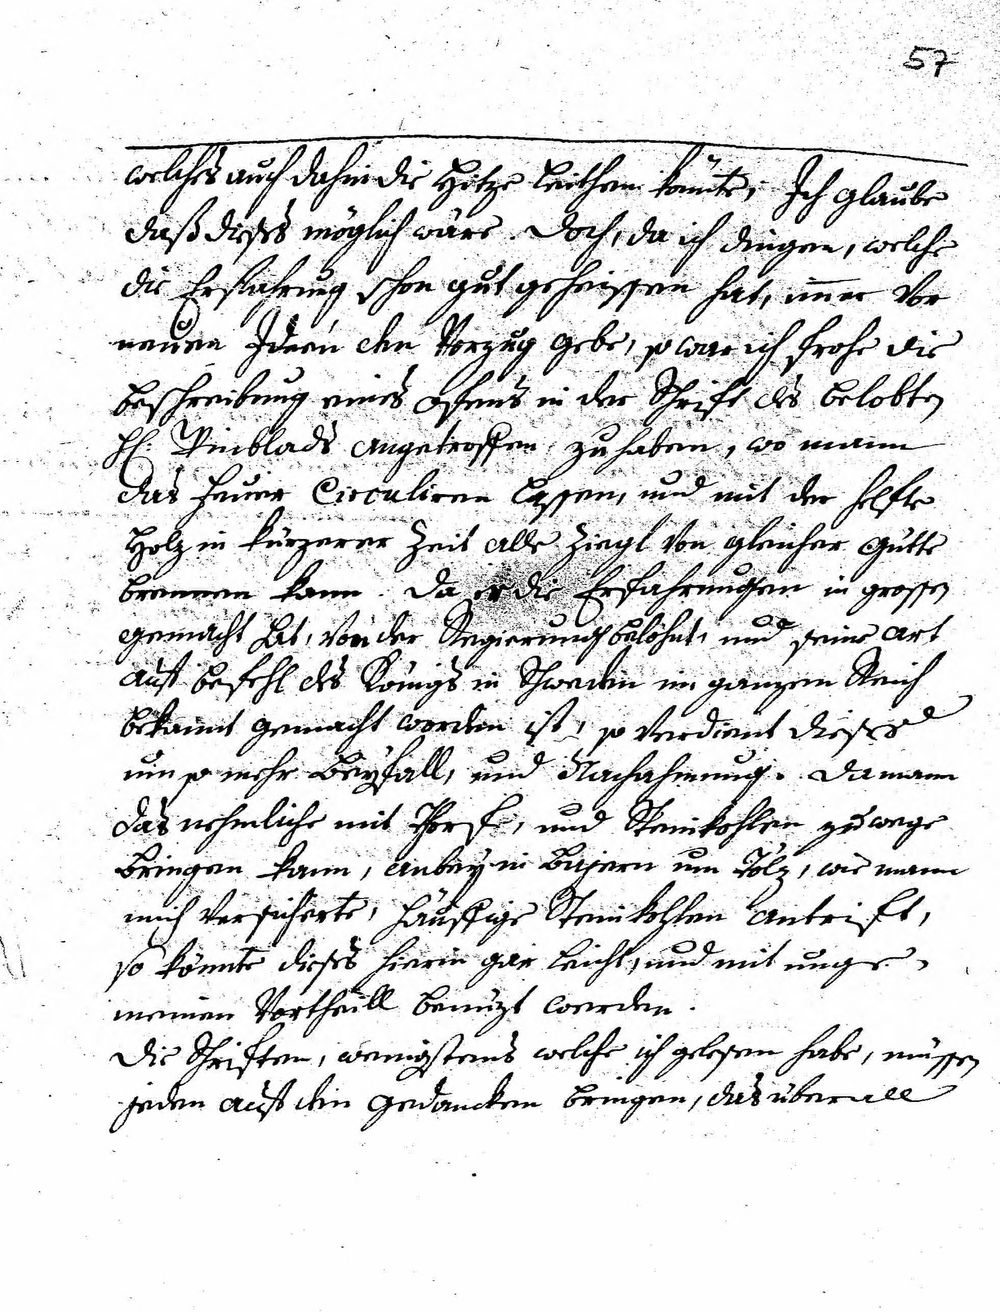 57
welches auch dahin die Hitze leithen könte, Ich glaube
daß dieses möglich wäre. Doch, da ich dingen, welche
die Erfahrung schon gut geheissen hat, im̅er vor
neuen Ideen den Vorzug gebe, so war ich frohe die
beschreibung eines Ofens in der Schrift des belobten
H. Rinblads angetroffen zu haben, wo mann
das feuer Circuliren lassen, und mit der helfte
Holz in kürzerer Zeit alle Ziegl von gleicher gütte
brennen kann. Da er die Erfahrungen in grossen
gemacht hat, von der Regierung belohnt, und seine art
auf befehl des Königs in Schweden im ganzen Reich
bekannt gemacht worden ist, so verdient dieses
um so mehr Beyfall, und Nachahmung. Da mann
das nehmliche mit Thorfe, und Steinkohlen zuwege
bringen kann, anbey in Bajern um Tölz, wie mann
mich versicherte, häuffige Steinkohlen antrift,
so könnte dieses hierin gar leicht, und mit unge-
meinen Vortheill benüzt werden.
Die Schriften, wenigstens welche ich gelesen habe, müssen
jeden auf den Gedancken bringen, das überall